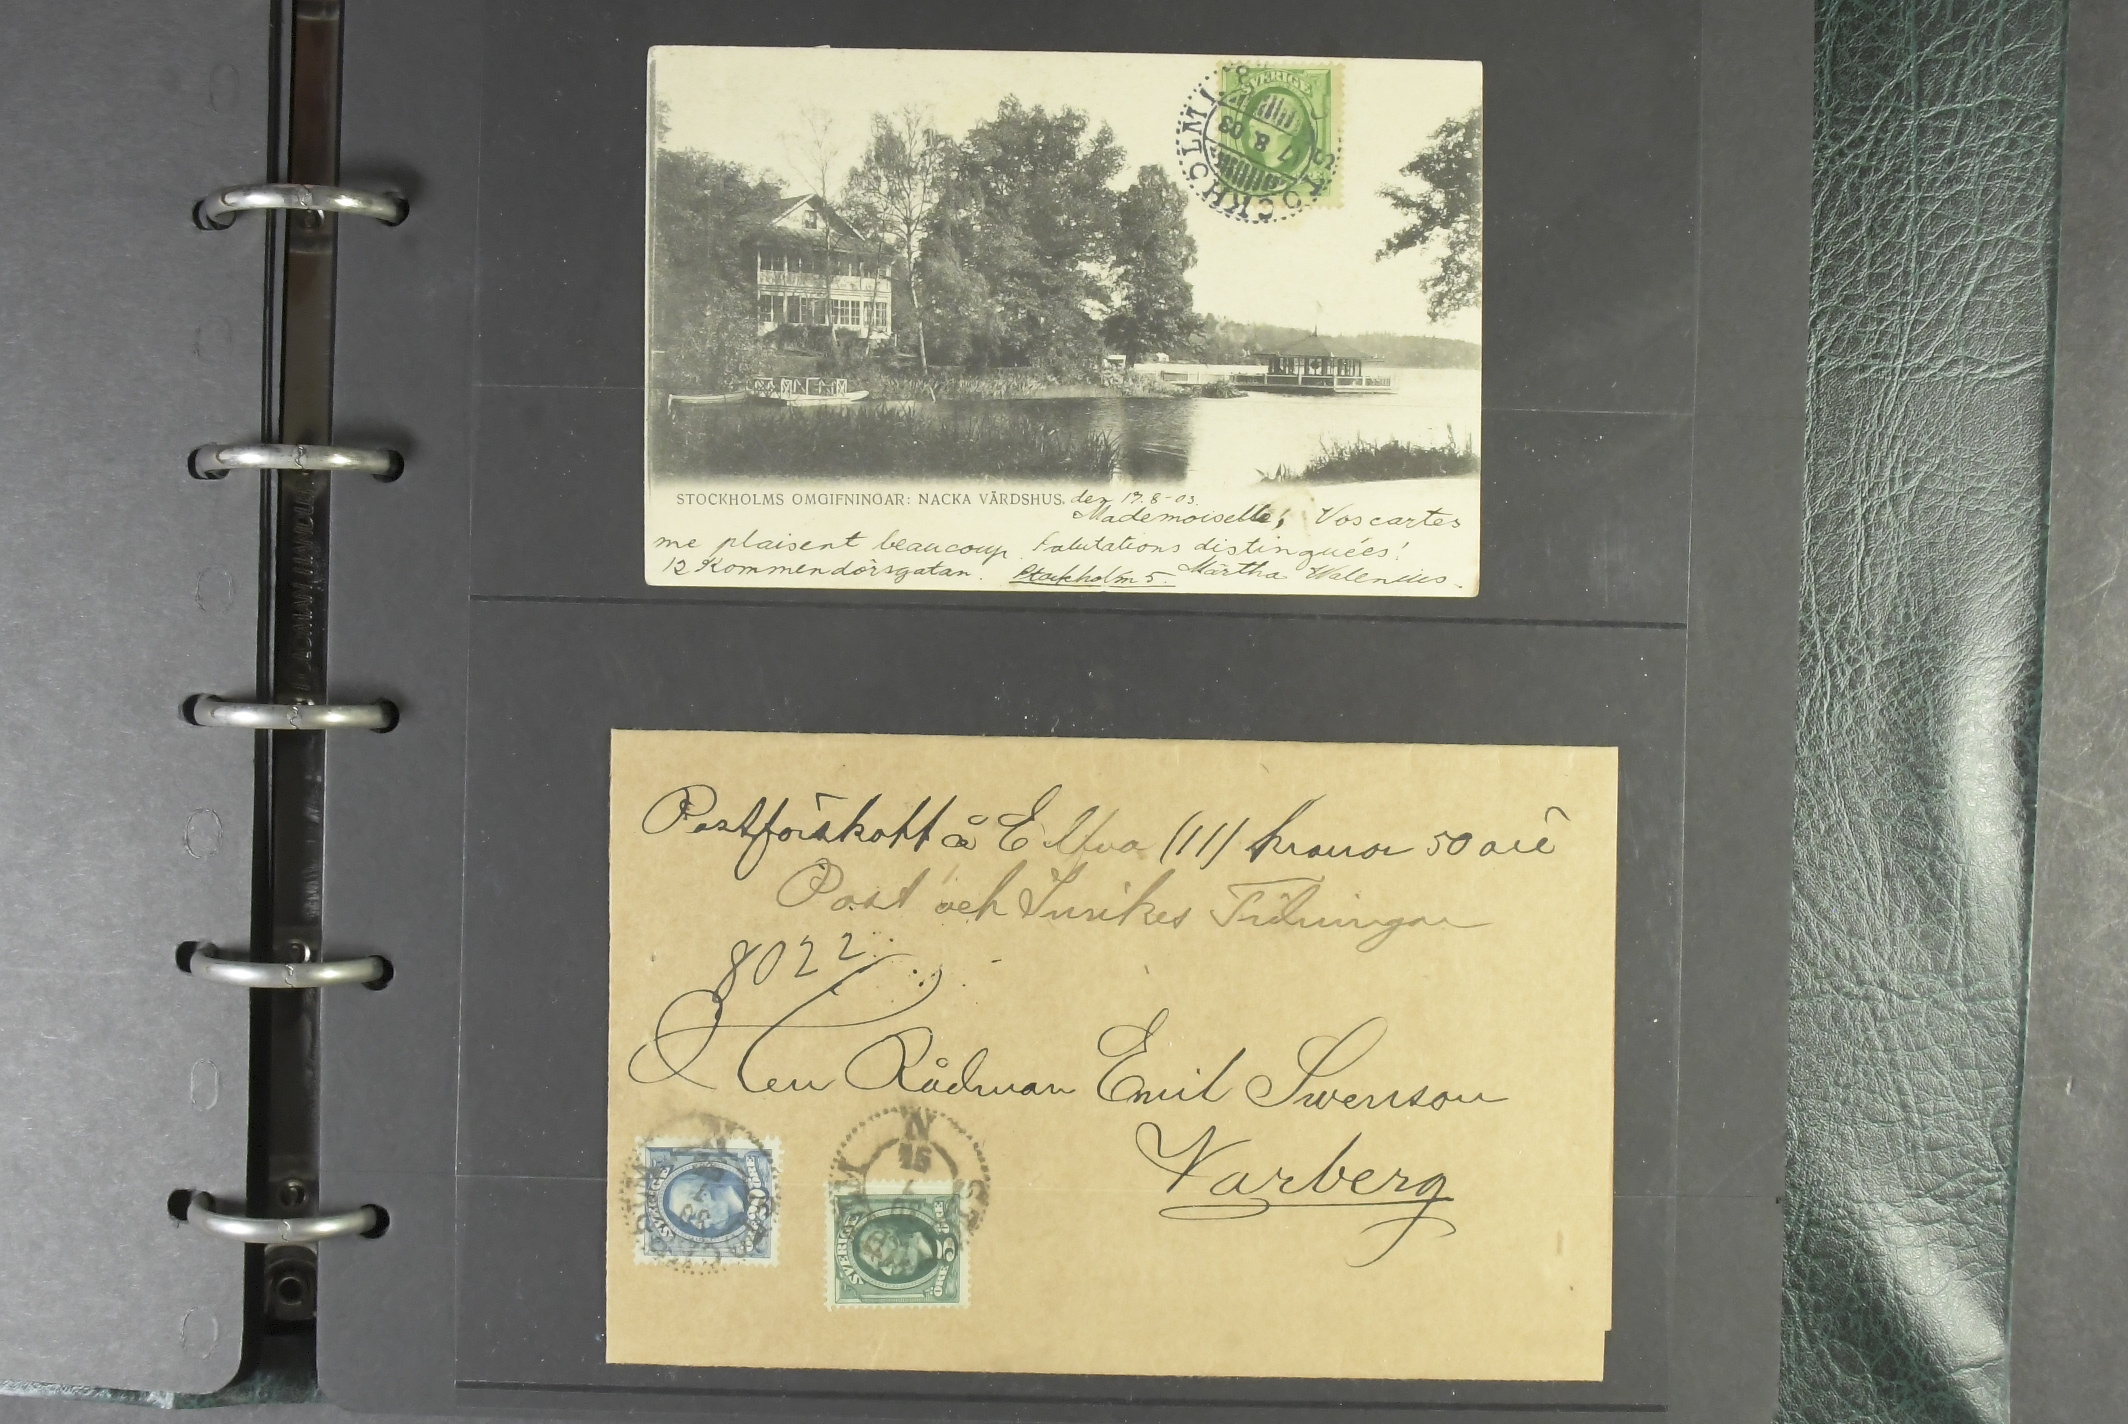 SVERIGE
STOCKHOLM 1
17 8 03
STOCKHOLMS OMGIFNINGAR: NACKA VÄRDSHUS. den 17.8-03.
Mademoiselle! Vos cartes
me plaisent beaucoup. Salutations distinguées!
12 Kommendörsgatan. Stockholm 5. Märtha Walenius.
Postförskott å Elfva (11) kronor 50 öre
Post och Inrikes Tidningar
8022
Herr Rådman Emil Swenson
Varberg
SVERIGE
SVERIGE
5 ÖRE